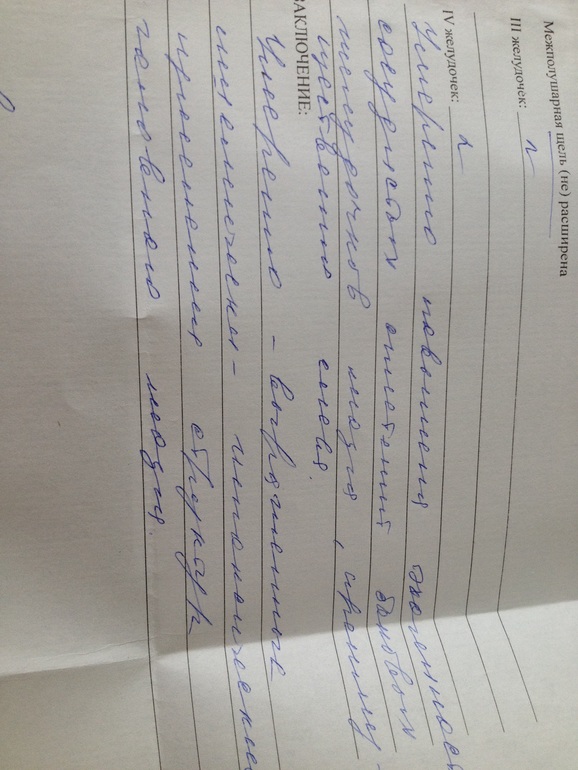 Межполушарная щель (не) расширена
III желудочек: n
IV желудочек: n
Умеренно повышена эхогенность
сосудистых сплетений боковых
желудочков мозга, преиму-
щественно слева.
ЗАКЛЮЧЕНИЕ:
Умеренно-выраженные
ишемически-гипоксические
изменения структур
головного мозга.